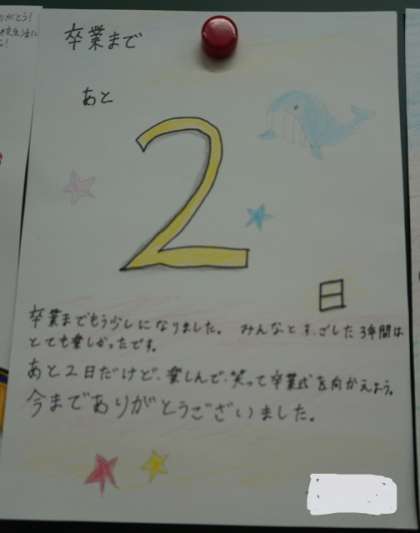 卒業まで
あと
2
日
卒業までもう少しになりました。 みんなとすごした3年間は
とても楽しかったです。
あと2日だけど、楽しんで、笑って卒業式を向かえよう。
今までありがとうございました。